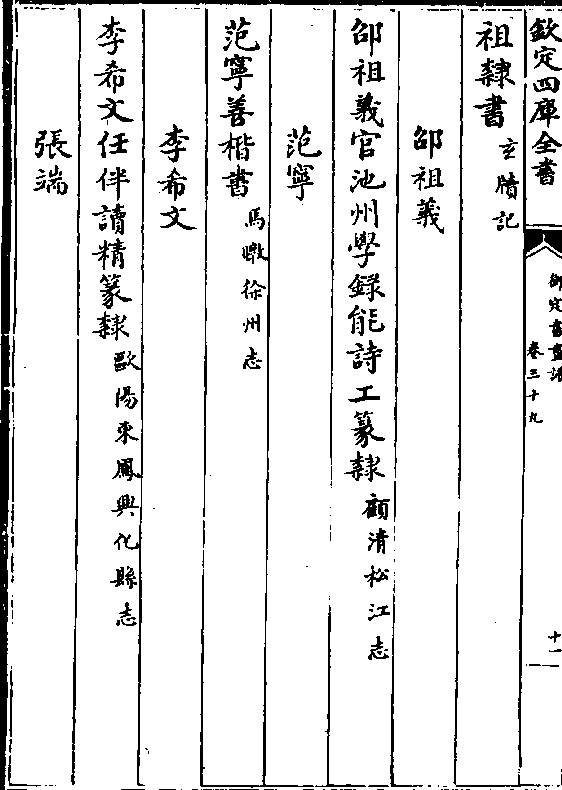 欽定四庫全書
御定書畫譜 卷三十九
十一
祖隸書 玄牘記
邵祖義
邵祖義官池州學録能詩工篆隸 顧清松江志
范寧
范寧善楷書 馬暾徐州志
李希文
李希文任伴讀精篆隸 歐陽東鳳興化縣志
張端